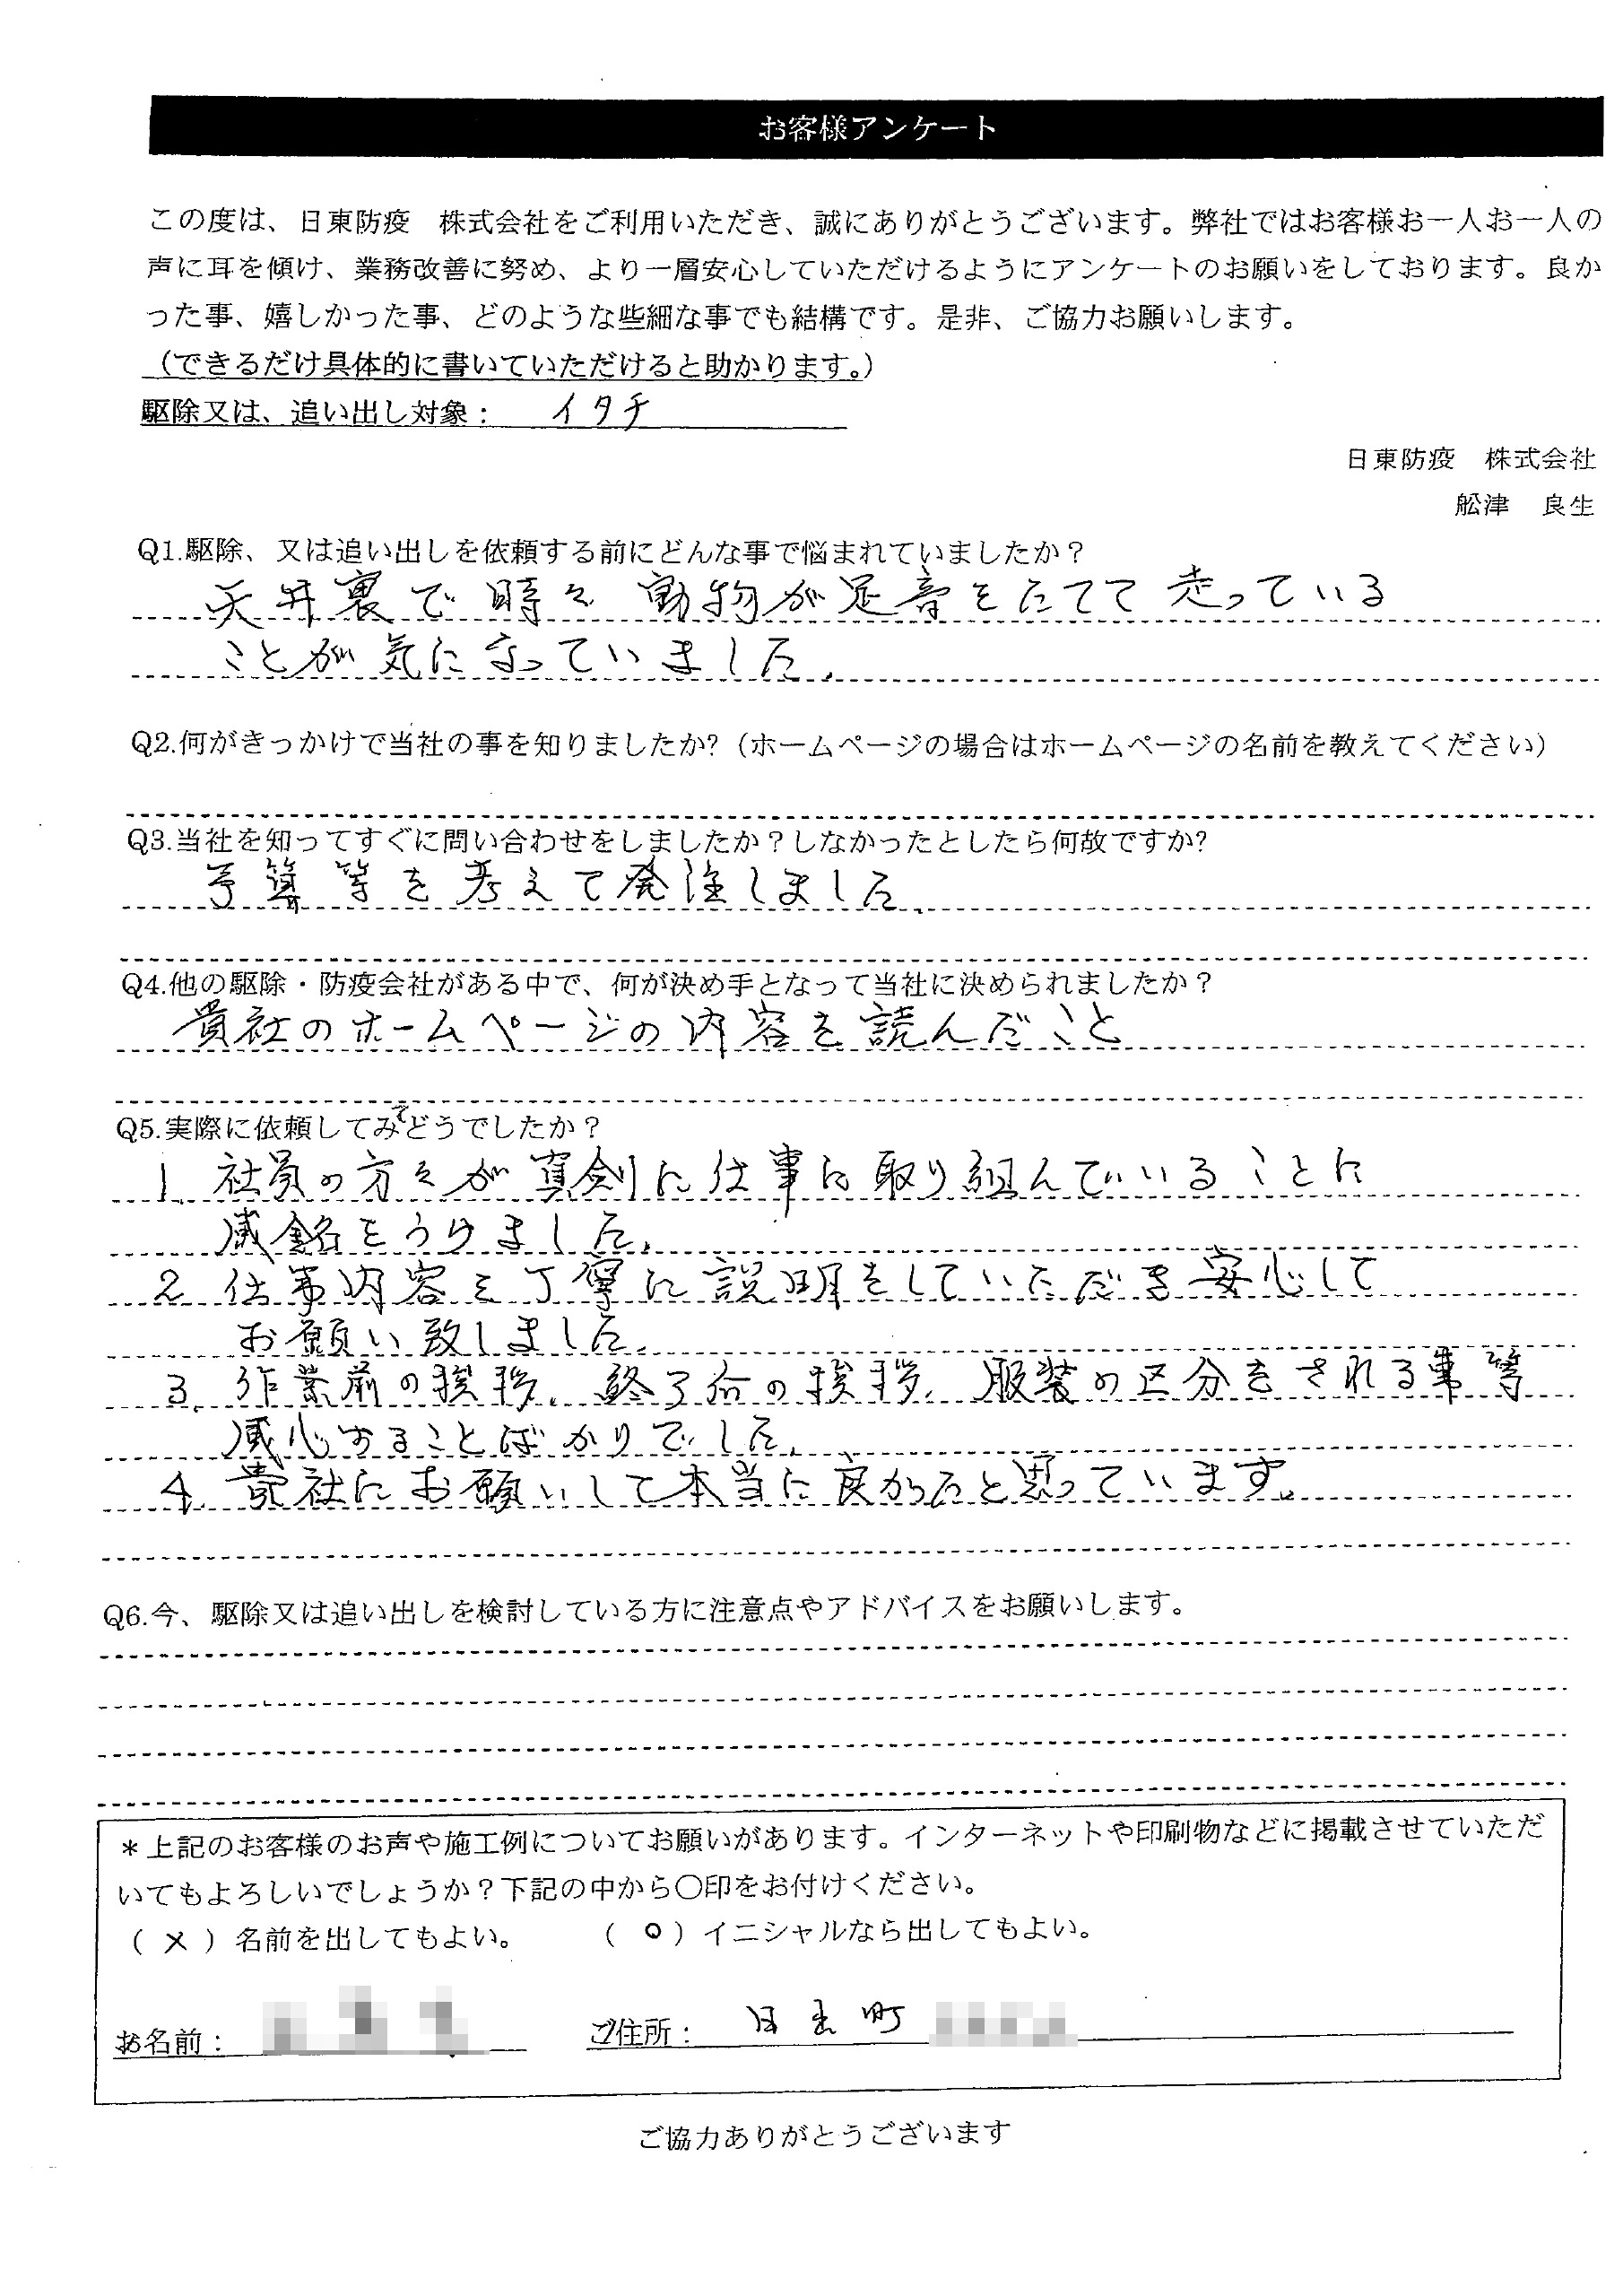 お客様アンケート
この度は、日東防疫　株式会社をご利用いただき、誠にありがとうございます。弊社ではお客様お一人お一人の
声に耳を傾け、業務改善に努め、より一層安心していただけるようにアンケートのお願いをしております。良か
った事、嬉しかった事、どのような些細な事でも結構です。是非、ご協力お願いします。
（できるだけ具体的に書いていただけると助かります。）
駆除又は、追い出し対象： イタチ
日東防疫　株式会社
舩津　良生
Q1.駆除、又は追い出しを依頼する前にどんな事で悩まれていましたか？
天井裏で時々動物が足音をたてて走っている
ことが気になっていました.
Q2.何がきっかけで当社の事を知りましたか?（ホームページの場合はホームページの名前を教えてください）
Q3.当社を知ってすぐに問い合わせをしましたか？しなかったとしたら何故ですか?
予算等を考えて発注しました.
Q4.他の駆除・防疫会社がある中で、何が決め手となって当社に決められましたか？
貴社のホームページの内容を読んだこと
Q5.実際に依頼してみてどうでしたか？
1. 社員の方々が真剣に仕事に取り組んでいることに
感銘をうけました.
2. 仕事内容を丁寧に説明をしていただき安心して
お願い致しました.
3. 作業前の挨拶、終了后の挨拶、服装の区分をされる事等
感心することばかりでした.
4. 貴社にお願いして本当に良かったと思っています.
Q6.今、駆除又は追い出しを検討している方に注意点やアドバイスをお願いします。
＊上記のお客様のお声や施工例についてお願いがあります。インターネットや印刷物などに掲載させていただ
いてもよろしいでしょうか？下記の中から○印をお付けください。
（ × ）名前を出してもよい。　（ ○ ）イニシャルなら出してもよい。
お名前：　ご住所： 日出町
ご協力ありがとうございます